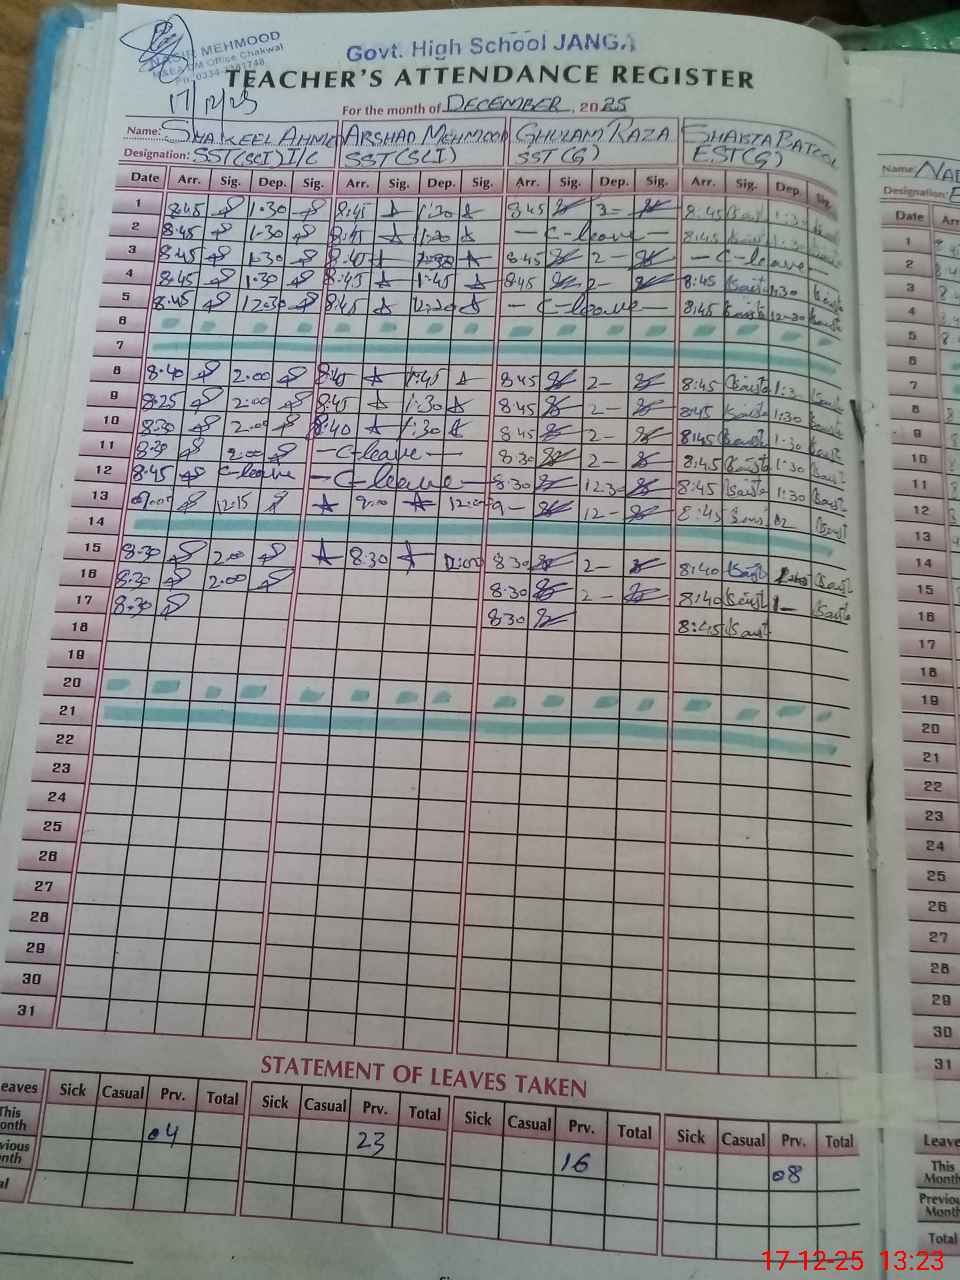 NASIR MEHMOOD
M&EA DM Office Chakwal
17/12/25
Govt. High School JANGA
TEACHER'S ATTENDANCE REGISTER
For the month of DECEMBER, 2025
Name: SHAKEEL AHMED ARSHAD MEHMOOD GHULAM RAZA SHAISTA BATOOL
Designation: SST(SCI) I/C SST(SCI) SST(G) EST(G)
Date Arr. Sig. Dep. Sig. Arr. Sig. Dep. Sig. Arr. Sig. Dep. Sig. Arr. Sig. Dep. Sig.
1 8:45 1·30 8:45 1:30 845 3- 8:45
2 8:45 1·30 8:45 - C-leave - 8:45
3 8:45 1·30 8:45 845 2- - C-leave -
4 8:45 1·30 8:45 1:45 8:45 2- 8:45 1:30
5 8:45 12·30 8:45 - C-leave - 8:45 12-30
6
7
8 8·40 2·00 8:45 1:45 845 2- 8:45
9 8:25 2:00 8:45 1:30 8:45 2- 8:45 1:30
10 8:30 2:00 8:40 1:30 8:45 2- 8:45 1·30
11 8:30 2:00 - C-leave - 8:30 2- 8:45 1:30
12 8:45 C-leave - C-leave - 8:30 8:45 1:30
13 12·15 9:00 9- 12- 8:45 12
14
15 8:30 2:00 8:30 8:30 2- 8:40
16 8:30 2:00 8:30 2- 8:40 1-
17 8:30 8:30 8:45
18
19
20
21
22
23
24
25
26
27
28
29
30
31
STATEMENT OF LEAVES TAKEN
Leaves Sick Casual Prv. Total Sick Casual Prv. Total Sick Casual Prv. Total Sick Casual Prv. Total
This Month 04 23 16 08
Name: NAD
Designation:
Date Arr
1
2
3
4
5
6
7
8
9
10
11
12
13
14
15
16
17
18
19
20
21
22
23
24
25
26
27
28
29
30
31
Leave
This
Month
Previou
Month
Total
17-12-25 13:23